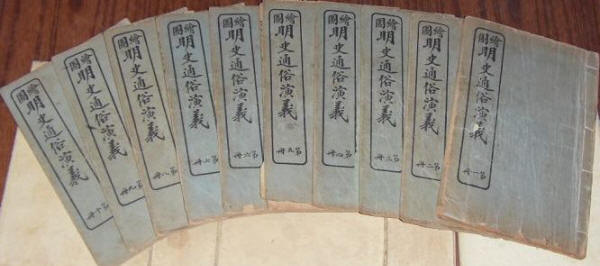 繪圖
明史通俗演義
第一冊
繪圖
明史通俗演義
第二冊
繪圖
明史通俗演義
第三冊
繪圖
明史通俗演義
第四冊
繪圖
明史通俗演義
第五冊
繪圖
明史通俗演義
第六冊
繪圖
明史通俗演義
第七冊
繪圖
明史通俗演義
第八冊
繪圖
明史通俗演義
第九冊
繪圖
明史通俗演義
第十冊